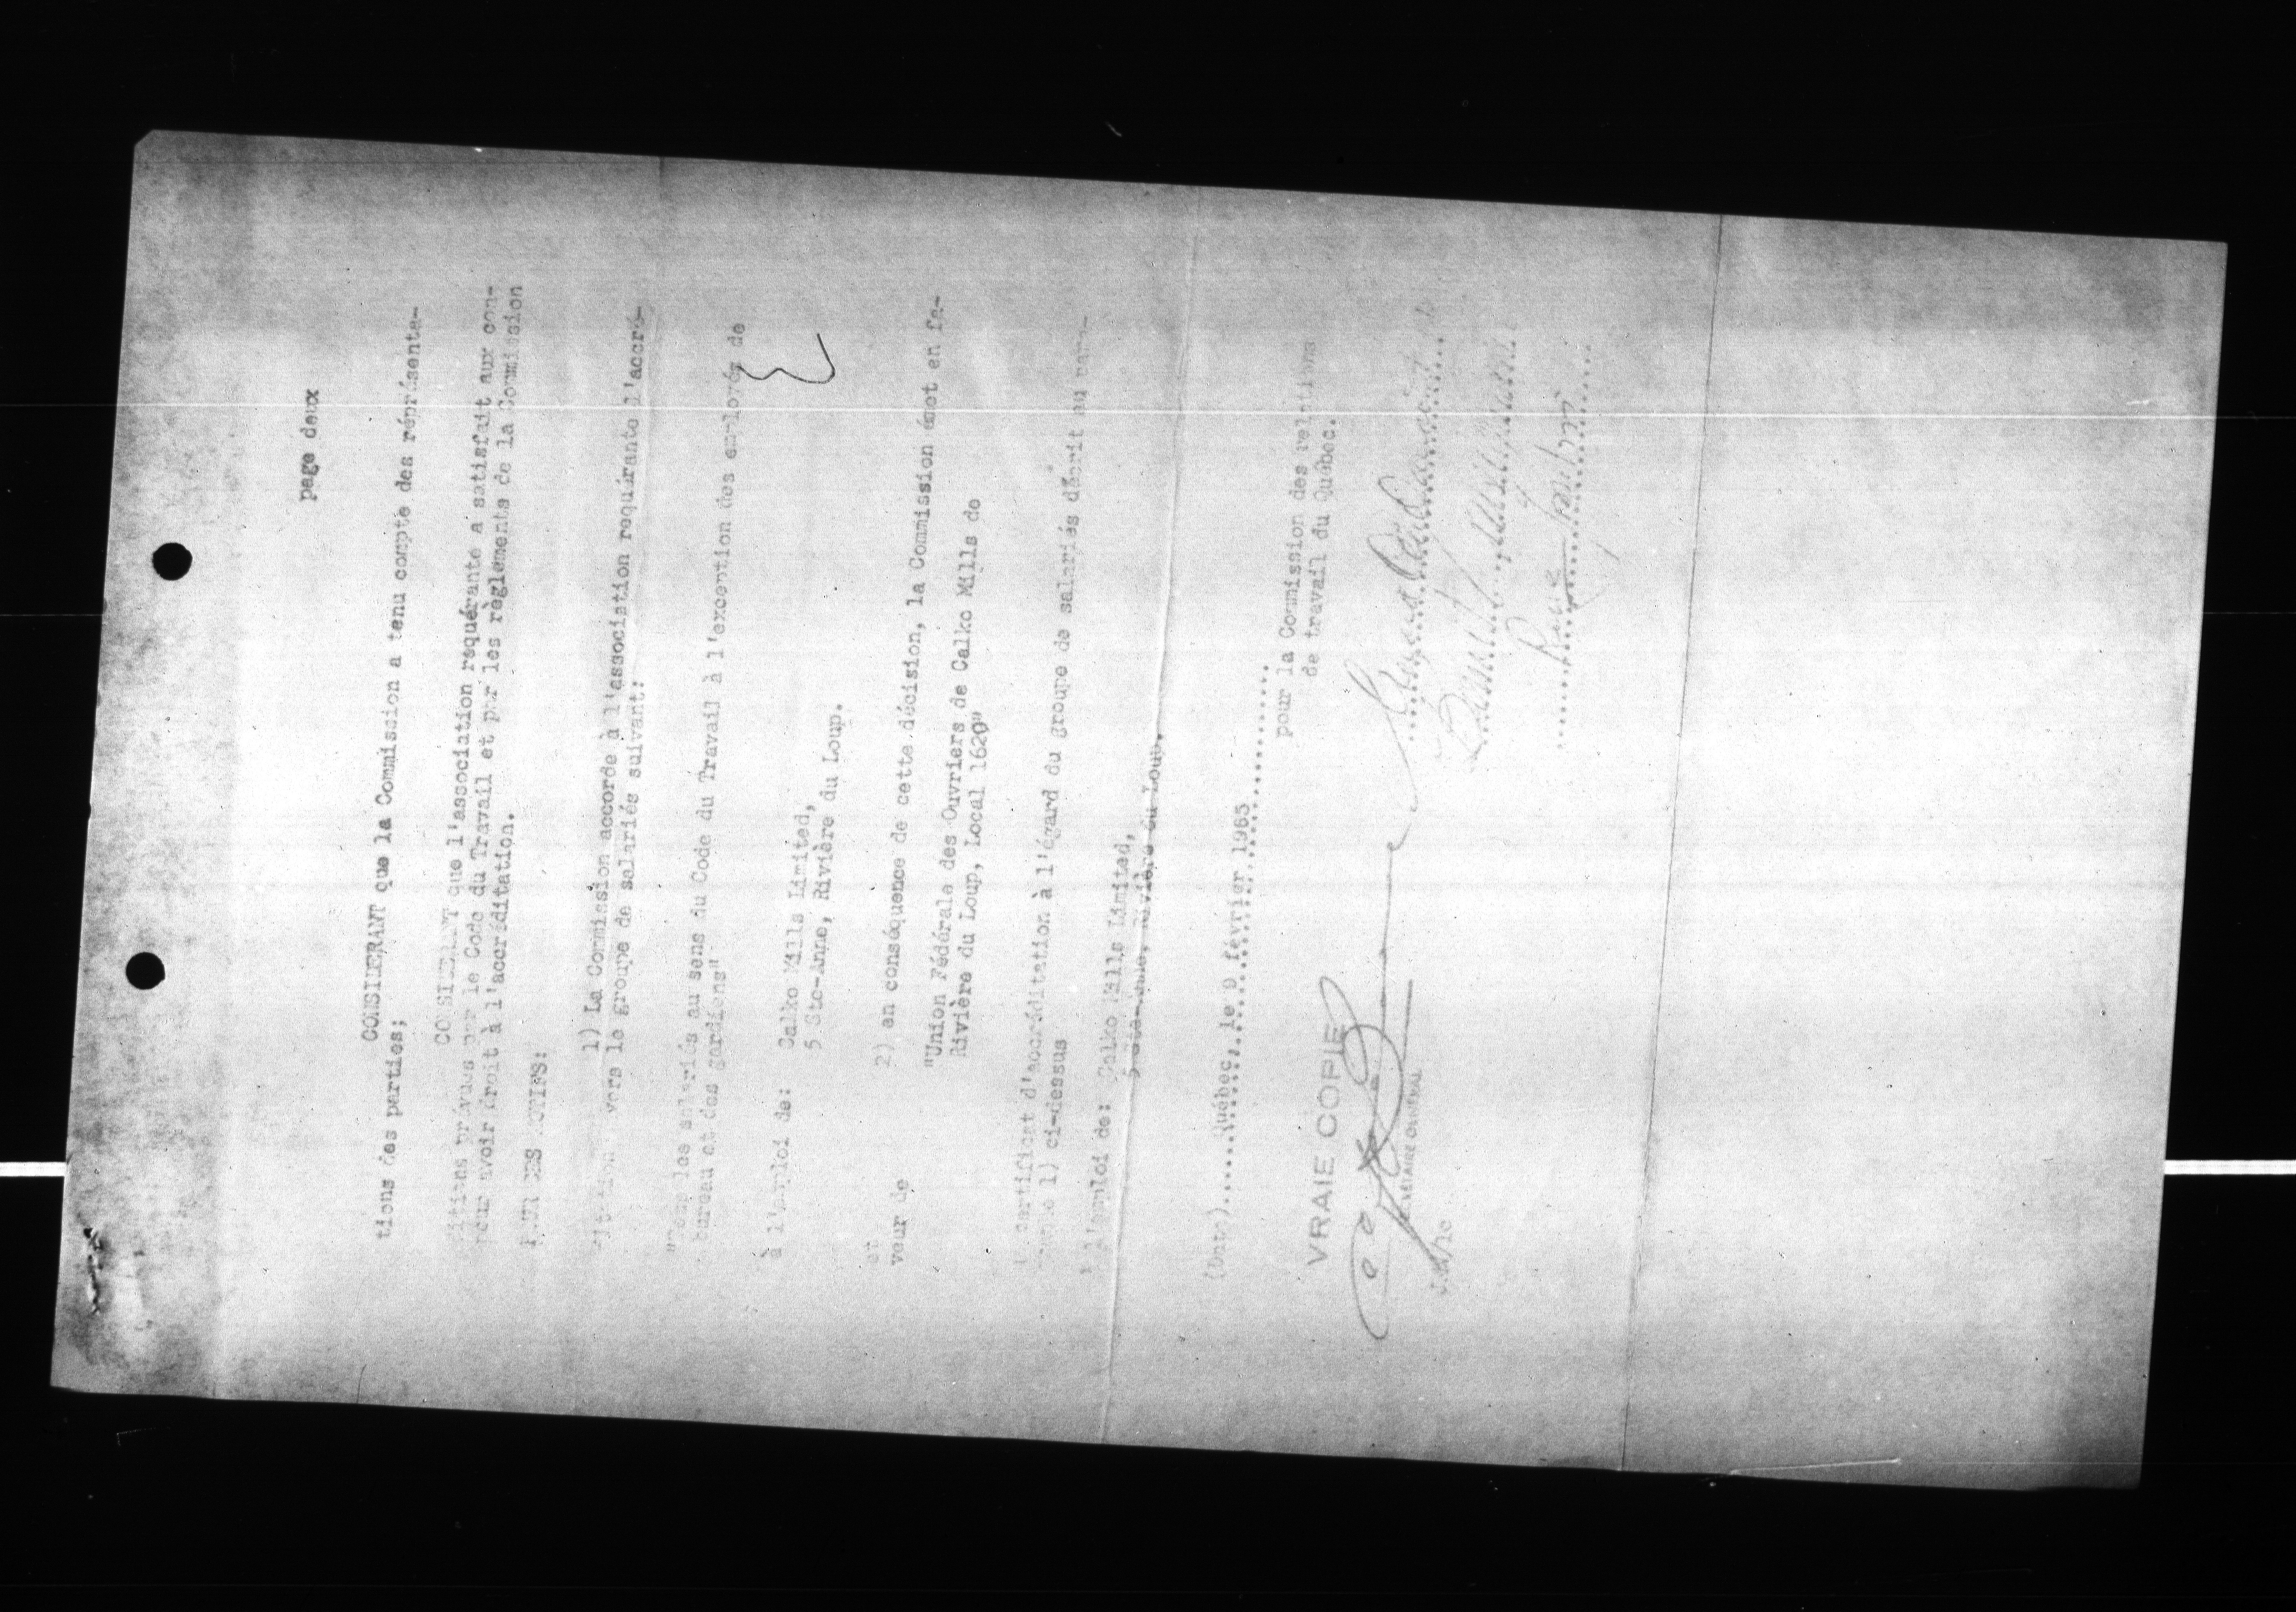 page deux
CONSIDERANT que la Commission a tenu compte des réprésenta-
tions des parties;
CONSIDERANT que l'association requérante a satisfait aux con-
ditions prévues par le Code du Travail et par les règlements de la Commission
pour avoir droit à l'accréditation.
POUR CES MOTIFS:
1) La Commission accorde à l'association requérante l'accré-
ditation vers le groupe de salariés suivant:
"Tous les salariés au sens du Code du Travail à l'exception des employés de
bureau et des gardiens"
à l'emploi de: Calko Mills Limited,
5 Ste-Anne, Rivière du Loup.
et 2) en conséquence de cette décision, la Commission émet en fa-
veur de
"Union Fédérale des Ouvriers de Calko Mills de
Rivière du Loup, Local 1620"
certificat d'accréditation à l'égard du groupe de salariés décrit au para-
1) ci-dessus
à l'emploi de: Calko Mills Limited,
5 Ste-Anne, Rivière du Loup.
(Date)......Québec, le 9 février 1965
pour la Commission des relations
de travail du Québec.
VRAIE COPIE
SECRÉTAIRE GÉNÉRAL